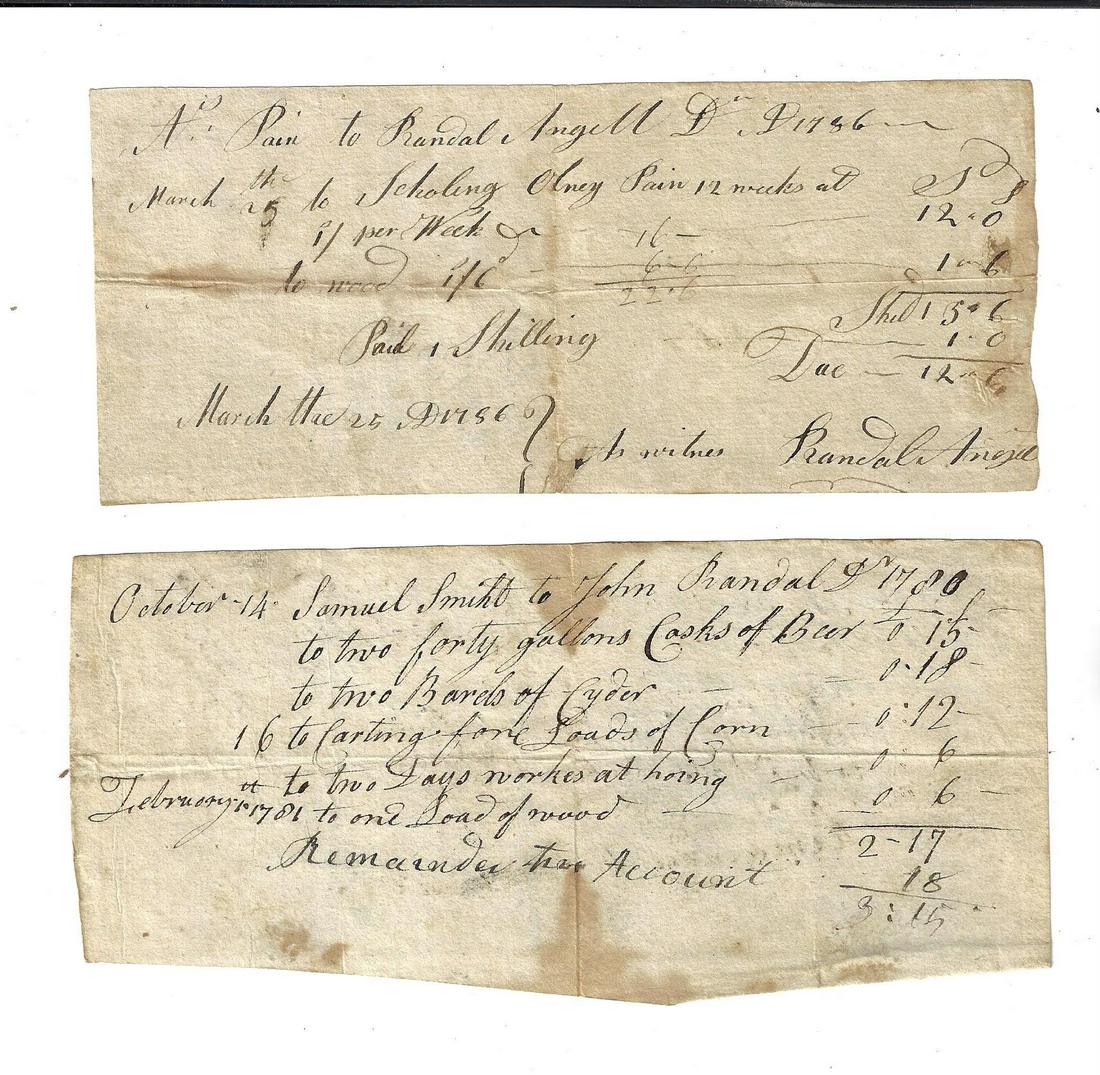 Ard. Pain to Randal Angell Dr AD 1786
S d
March the 25 to Scholing Olney Pain 12 weeks at 12 0
1/ per Week 16
to wood 1/6 6-6 1 6
22-6
Shd 13 6
Paid 1 Shilling 1 0
Due 12 6
March the 25 AD 1786
As witnes Randal Angell
October 14 Samuel Smiht to John Randal Dr 1780
to two forty gallons Casks of Beer 0 15
to two Barels of Cyder 0 18
16 to Carting fore Loads of Corn 0:12
to two Days workes at hoing 0 6
February 1781 to one Load of wood 0 6
2-17
Remainder Account 18
3:15